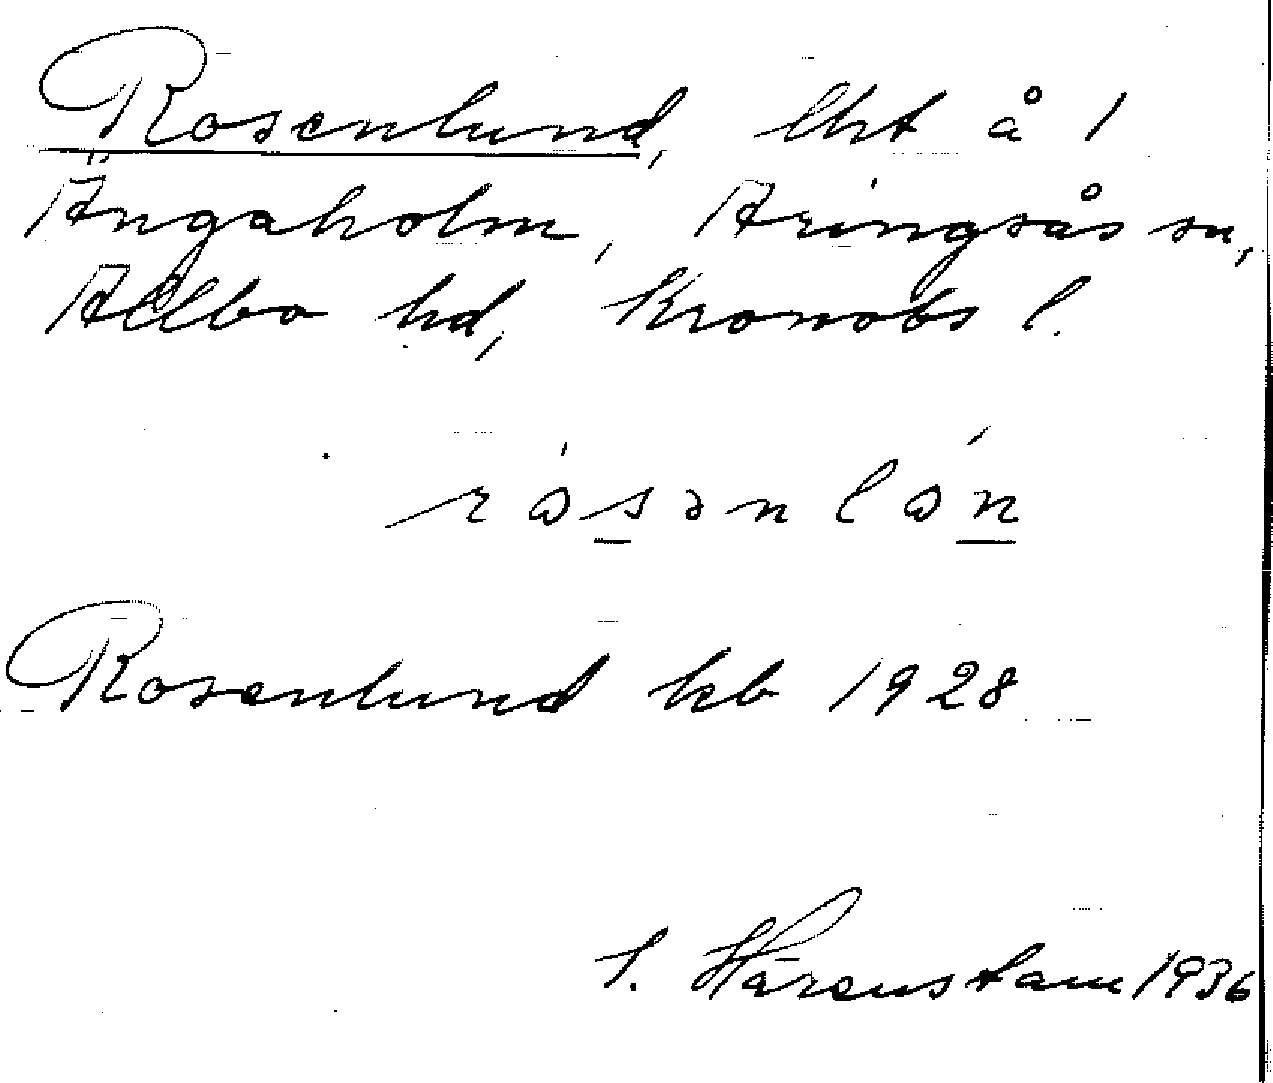 Rosenlund, lht å 1
Ängaholm, Aringsås sn,
Allbo hd, Kronobs l.
rósənlón
Rosenlund kb 1928
S. Härenstam 1936